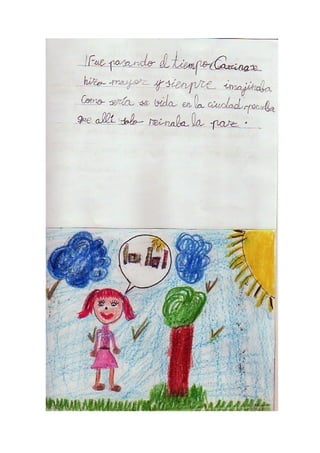 Fue pasando el tiempo, Carina se
hizo mayor y siempre imajinaba
como sería su vida en la ciudad, pensaba
que allí solo reinaba la paz.